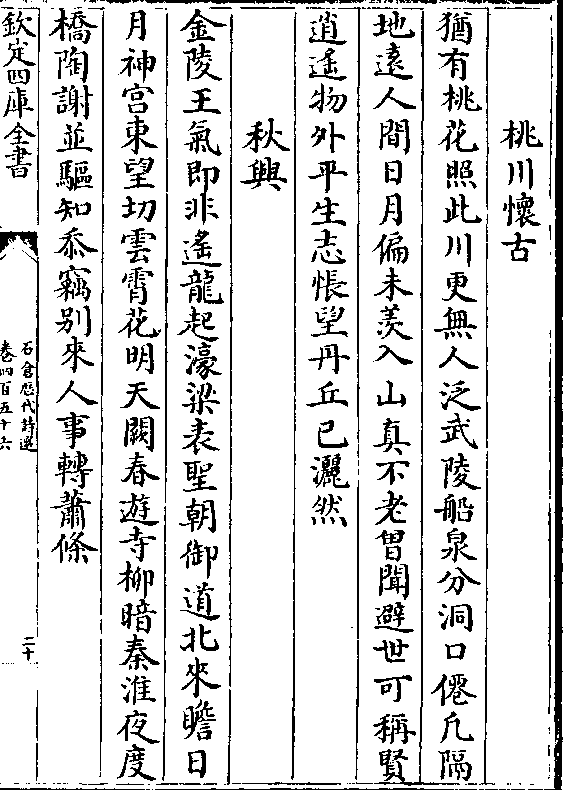 桃川懷古
猶有桃花照此川更無人泛武陵船泉分洞口僊凡隔
地逺人間日月偏未羡入山真不老曽聞避世可稱賢
逍遥物外平生志悵望丹丘已灑然
秋興
金陵王氣即非遥龍起濠梁表聖朝御道北來瞻日
月神宫東望切雲霄花明天闕春遊寺柳暗秦淮夜度
橋陶謝並驅知忝竊别來人事轉蕭條
欽定四庫全書
石倉歴代詩選
卷四百五十六
二十